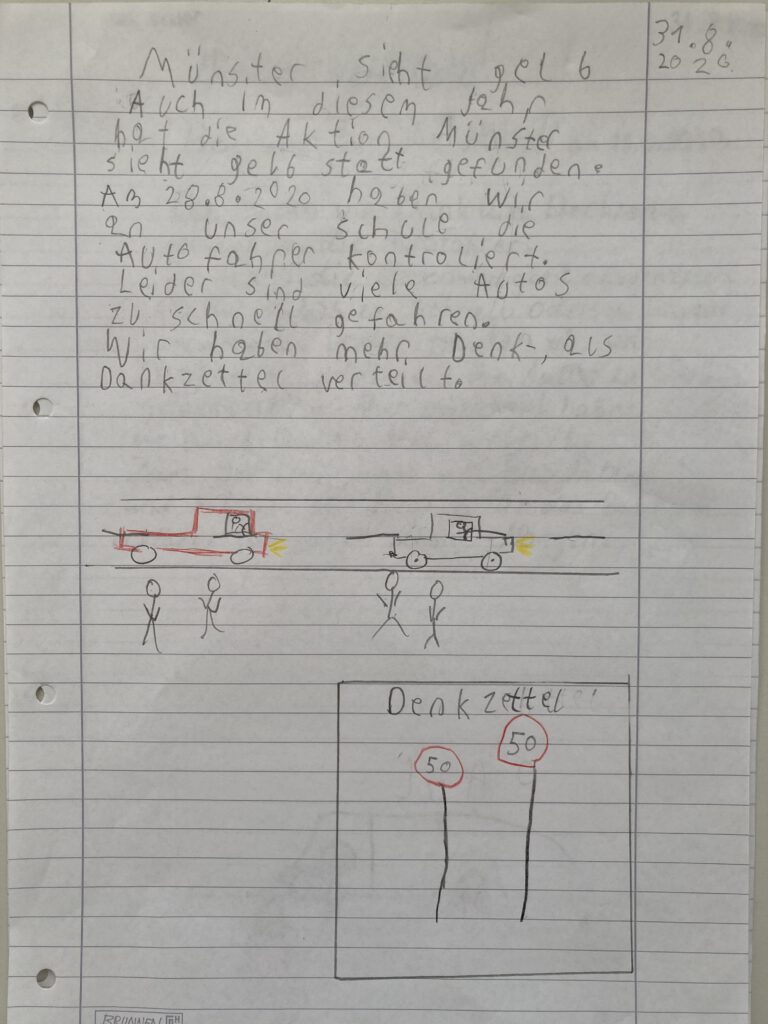 31.8.
2020
Münster sieht gelb
Auch im diesem Jahr
hat die Aktion Münster
sieht gelb statt gefunden.
Am 28.8.2020 haben wir
an unser schule die
Autofahrer kontroliert.
Leider sind viele Autos
zu schnell gefahren.
Wir haben mehr Denk-, als
Dankzettel verteilt.
Denkzettel
50
50
BRUNNEN